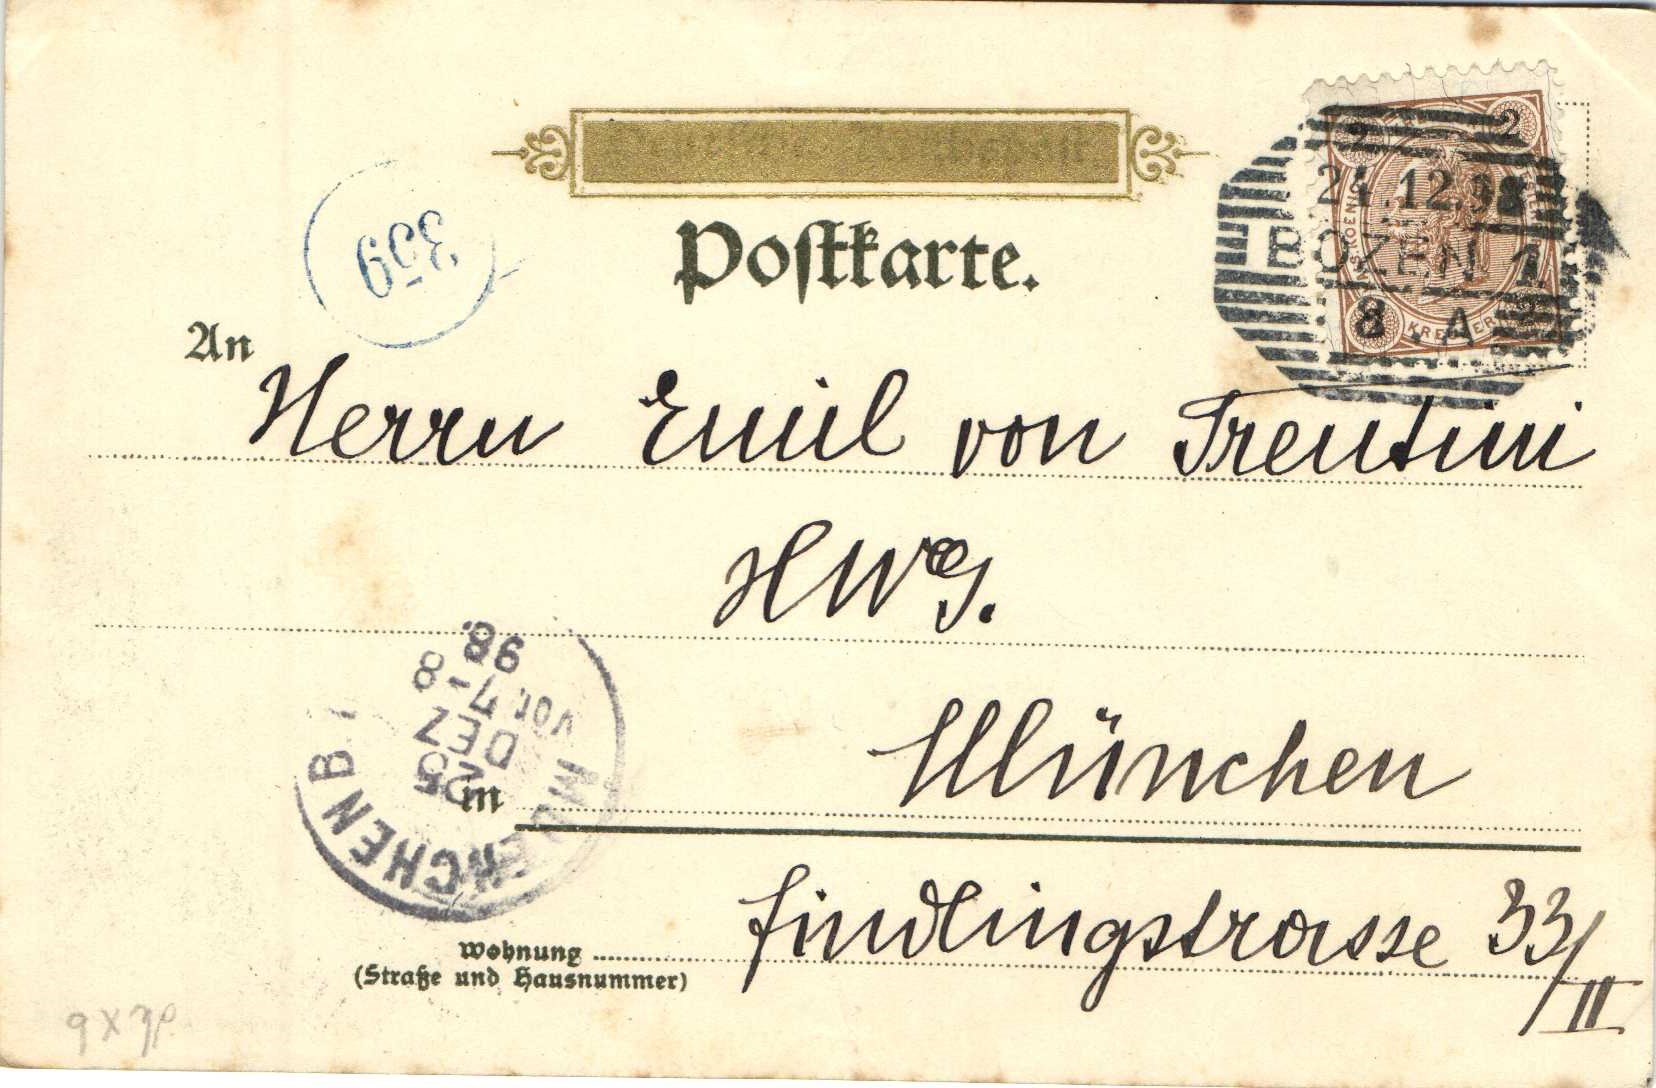 2 2
21.12.98
BOZEN 1
8 A
KREUZER
359
Postkarte.
An
Herrn Emil von Trentini
München
in
Findlingstrasse 33/II
Wohnung
(Straße und Hausnummer)
MUENCHEN B.
25
DEZ
VOR. 7-8
98.